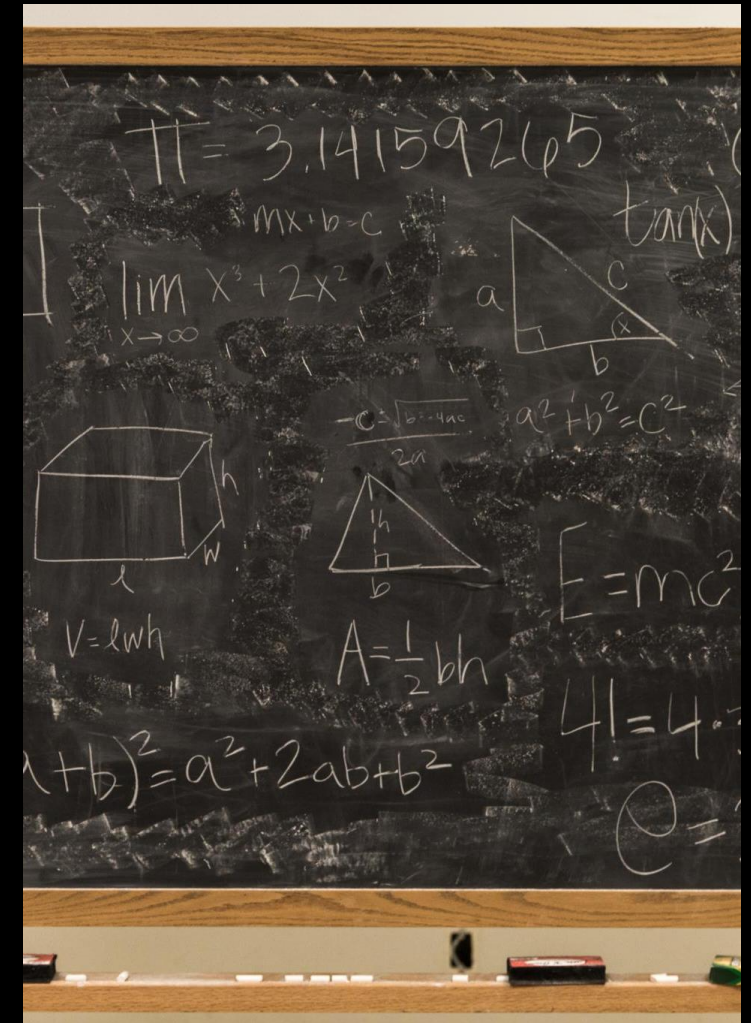 π = 3.14159265
mx+b=c
tan(x)
lim x³ + 2x²
x→∞
a
c
x
b
-c±√b²-4ac
2a
a²+b²=c²
h
w
l
h
b
E=mc²
V=lwh
A=1/2 bh
4!=4·
+b)²=a²+2ab+b²
e=